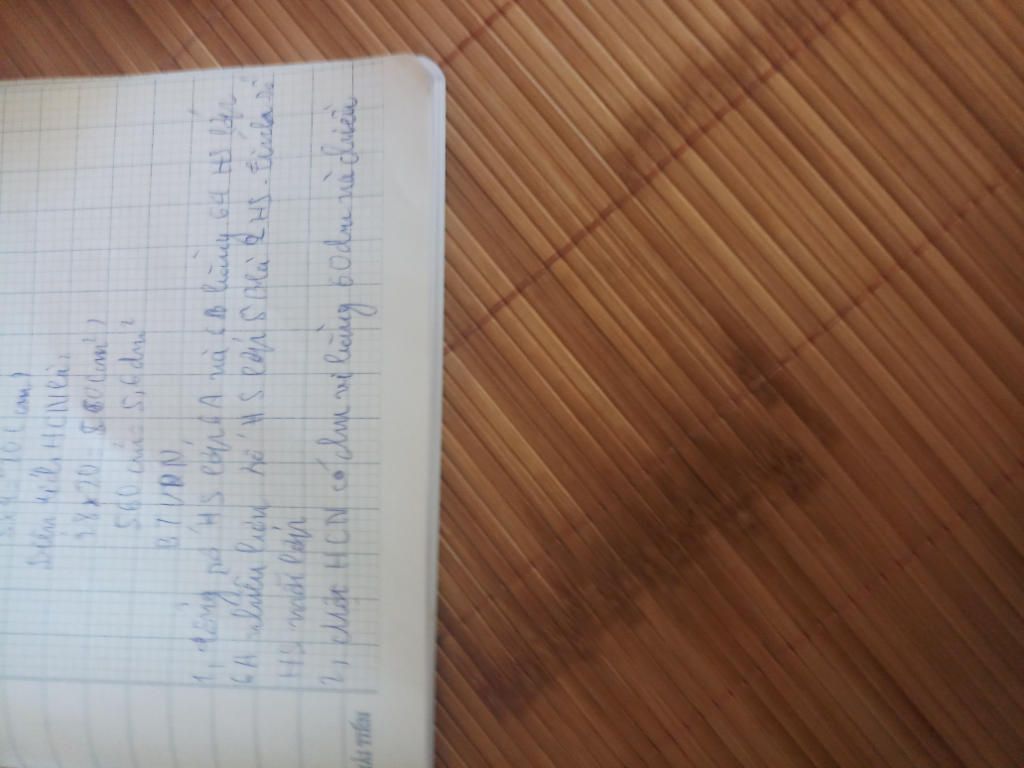 5 x 4 = 20 (cm)
Diện tích HCN là:
28 x 20 = 560 (cm²)
560 cm² = 5,6 dm²
BTVN
1, Tổng số HS lớp 6A và 6B bằng 64 HS lớp
6A nhiều hơn số HS lớp 5 là 2 HS. Tính số
HS mỗi lớp
2, Một HCN có chu vi bằng 60dm và chiều